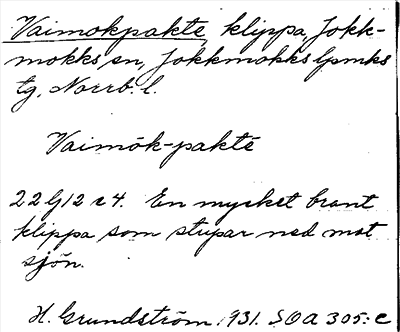 Vaimokpakte, klippa, Jokk-
mokks sn, Jokkmokks lpmks
tg, Norrb. l.
Vaimok-pakte
22 G 12 c 4. En mycket brant
klippa som stupar ned mot
sjön.
H. Grundström 1931. SOA 305: c